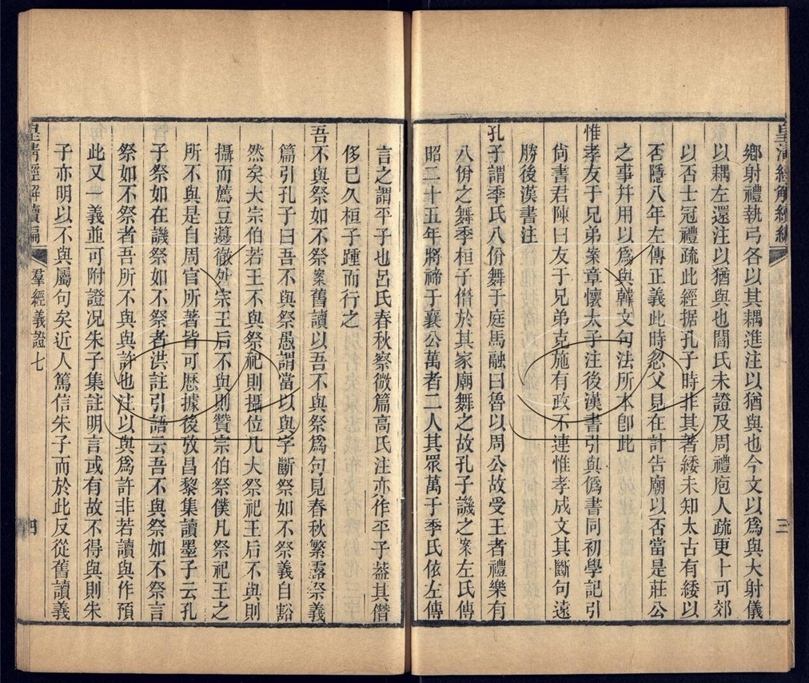 皇清經解續編
三
鄉射禮執弓各以其耦進注以猶與也今文以爲與大射儀
以耦左還注以猶與也閻氏未證及周禮庖人疏更卜可郊
以否士冠禮疏此經据孔子時非其著緌未知太古有緌以
否隱八年左傳正義此時忽父見在計告廟以否當是莊公
之事幷用以爲與韓文句法所本卽此
惟孝友于兄弟案章懷太子注後漢書引與僞書同初學記引
尙書君陳曰友于兄弟克施有政不連惟孝成文其斷句遠
勝後漢書注
孔子謂季氏八佾舞于庭馬融曰魯以周公故受王者禮樂有
八佾之舞季桓子僭於其家廟舞之故孔子譏之案左氏傳
昭二十五年將禘于襄公萬者二人其眾萬于季氏依左傳
言之謂平子也呂氏春秋察微篇高氏注亦作平子葢其僭
侈已久桓子踵而行之
吾不與祭如不祭案舊讀以吾不與祭爲句見春秋繁露祭義
篇引孔子曰吾不與祭愚謂當以與字斷祭如不祭義自豁
然矣大宗伯若王不與祭祀則攝位凡大祭祀王后不與則
攝而薦豆籩徹外宗王后不與則贊宗伯祭僕凡祭祀王之
所不與是自周官所著皆可歷據後攷昌黎集讀墨子云孔
子祭如在譏祭如不祭者洪註引語云吾不與祭如不祭言
祭如不祭者吾所不與與許也注以與爲許非若讀與作預
此又一義並可附證況朱子集註明言或有故不得與則朱
子亦明以不與屬句矣近人篤信朱子而於此反從舊讀義
皇清經解續編
羣經義證七
四